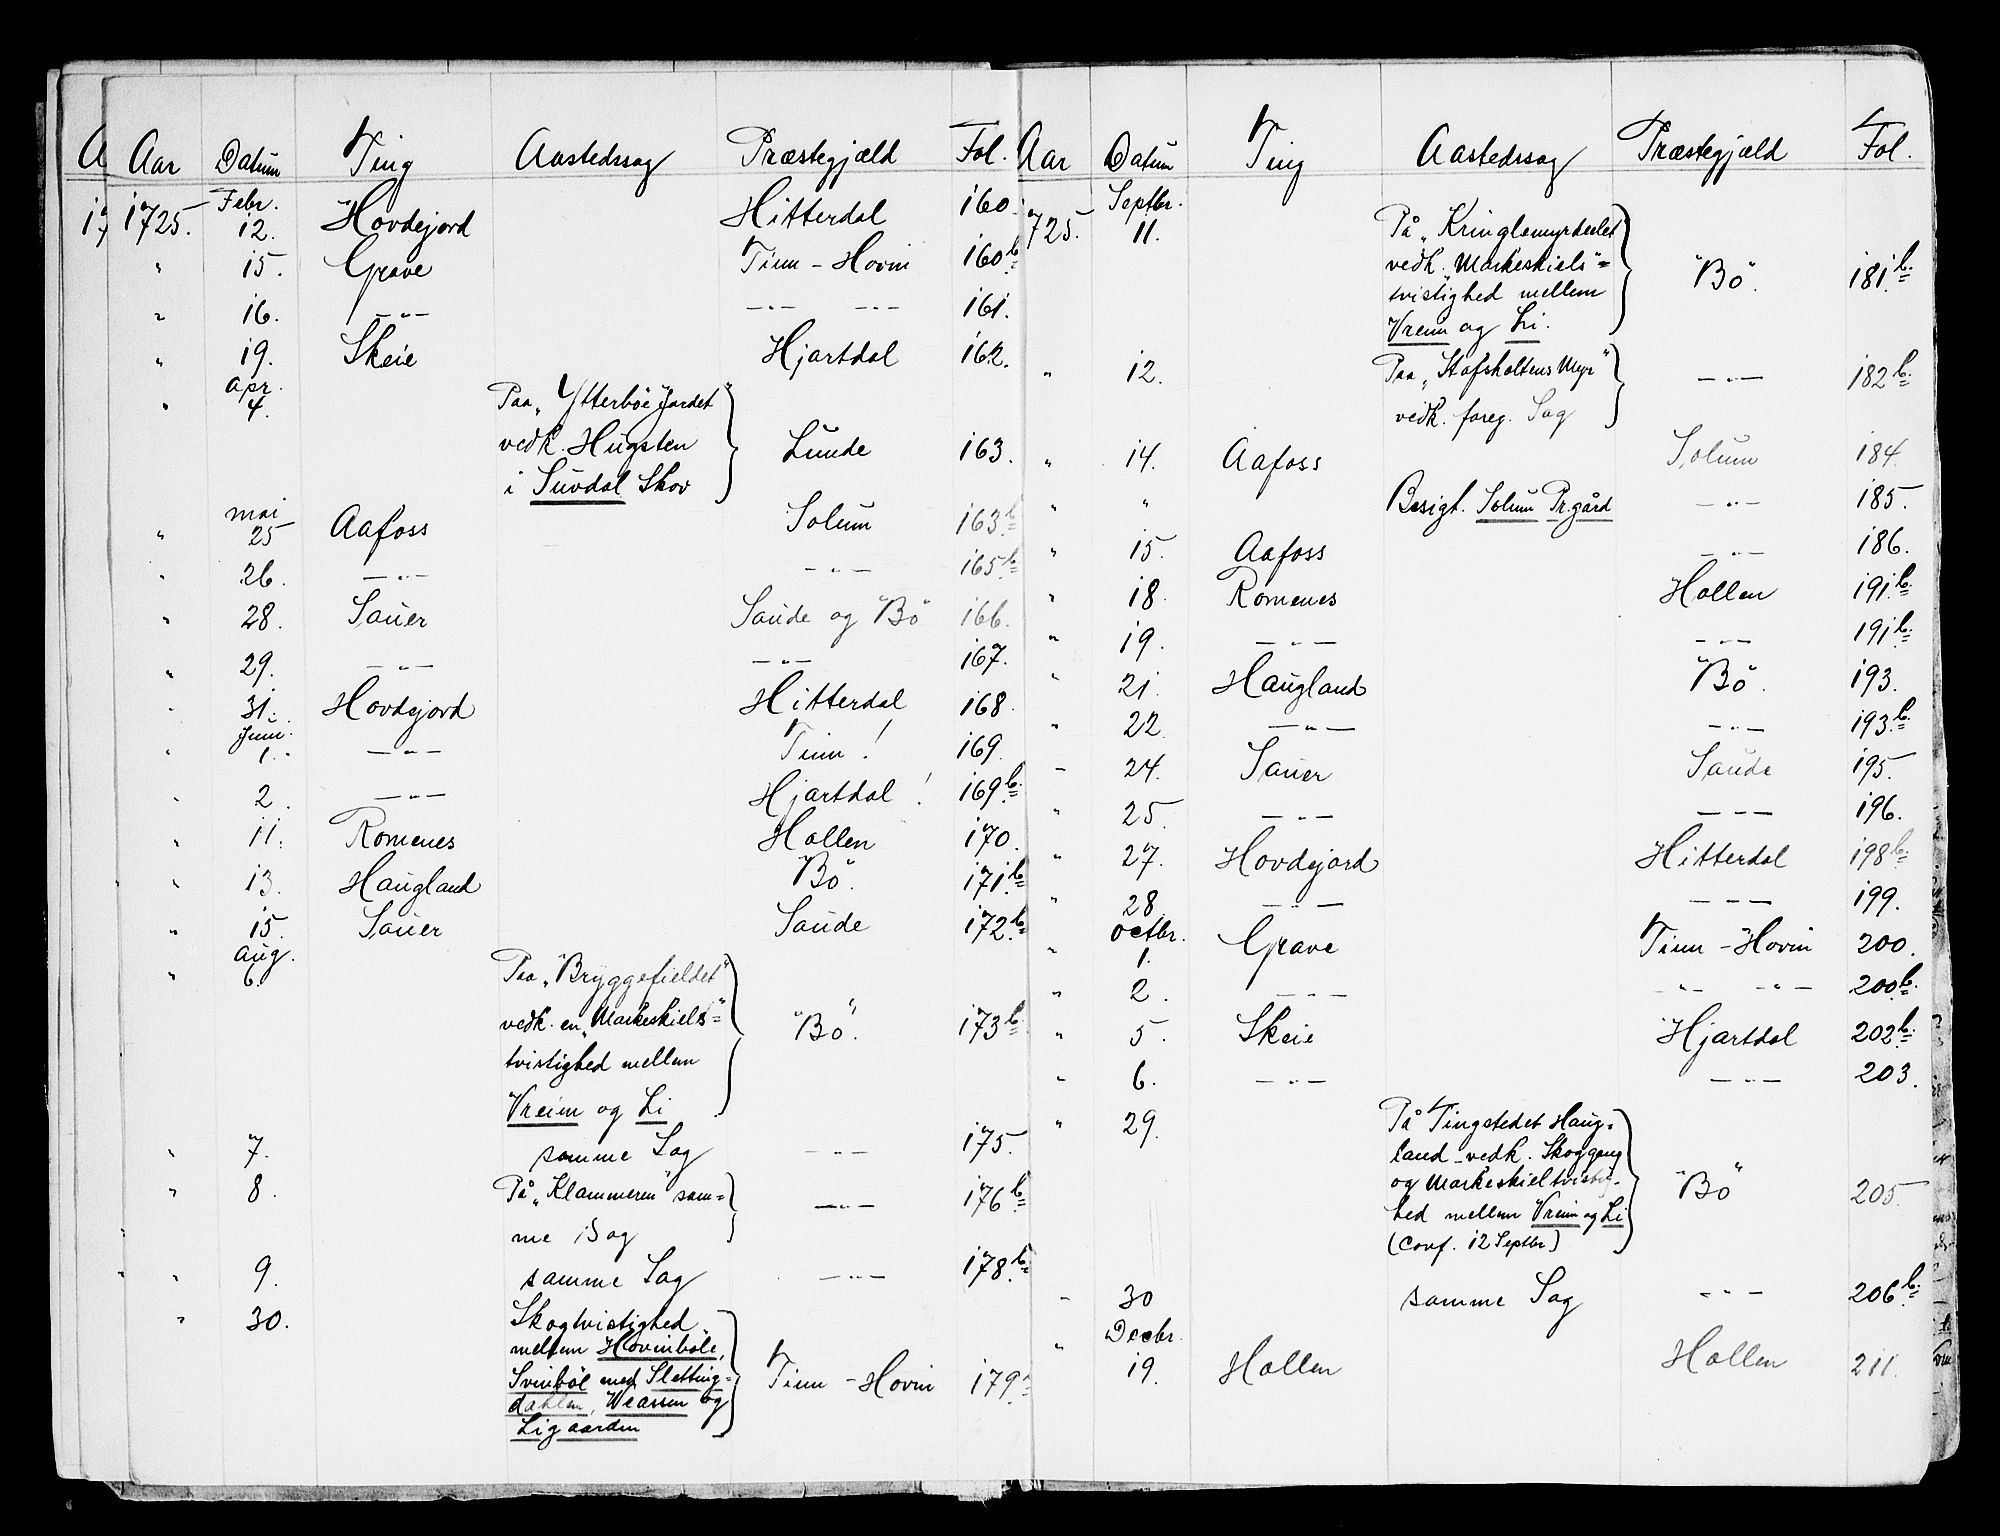 Aar Datum Ting Aastedssag Præstegjæld Fol.
1725. Febr. 12. Hovdejord Hitterdal 160.
" 15. Grave Tinn - Hovin 160 b.
" 16. —"— —"— —"— 161.
" 19. Skeie Hjartdal 162.
" Apr. 4. Paa "Ytterböe Jordet"
vedk. Hugsten Lunde 163.
i Suvdal Skov
" Mai 25 Aafoss Solum 163 b.
" 26. —"— —"— 165 b.
" 28. Sauer Saude og Bö 166.
" 29. —"— —"— 167.
" 31. Hovdejord Hitterdal 168.
" Juni 1. —"— Tinn! 169.
" 2. —"— Hjartdal! 169 b.
" 11. Romenes Hollen 170.
" 13. Haugland Bö. 171 b.
" 15. Sauer Saude 172 b.
" Aug. 6. Paa "Bryggefieldet"
vedk. en "Markeskiels"= "Bö". 173 b.
tvistighed mellem
Vreim og Li
" 7. samme Sag —"— 175.
" 8. På "Klammeren" sam=
me Sag —"— 176 b.
" 9. samme Sag —"— 178 b.
" 30. Skogtvistighed
mellem Hovinböle,
Svinböl med Sletting= Tinn - Hovin 179
dahlen, Weassen og
Ligaarden
Aar Datum Ting Aastedssag Præstegjæld Fol.
725. Septbr. 11. På "Kringlemyrdeelet
vedk. "Markeskiels"= "Bö". 181 b.
tvistighed mellem
Vreim og Li.
" 12. Paa "Stafsholtens Myr"
vedk. foreg. Sag —"— 182 b.
" 14. Aafoss Solum 184.
" " Besigt. Solum Pr.gård —"— 185.
" 15. Aafoss —"— 186.
" 18. Romenes Hollen 191 b.
" 19. —"— —"— 191 b.
" 21. Haugland "Bö". 193.
" 22. —"— —"— 193 b.
" 24. Sauer Saude 195.
" 25. —"— —"— 196.
" 27. Hovdejord Hitterdal 198 b.
" 28. —"— —"— 199.
" Octbr. 1. Grave Tinn - Hovin 200.
" 2. —"— —"— —"— 200 b.
" 5. Skeie Hjartdal 202 b.
" 6. —"— —"— 203.
" 29. På Tingstedet Haug=
land vedk. Skoggang
og Markeskieltvistig=
hed mellem Vreim og Li "Bö" 205.
(Conf. 12 Septbr)
" 30 samme Sag —"— 206 b.
" Decbr. 19. Hollen Hollen 211.